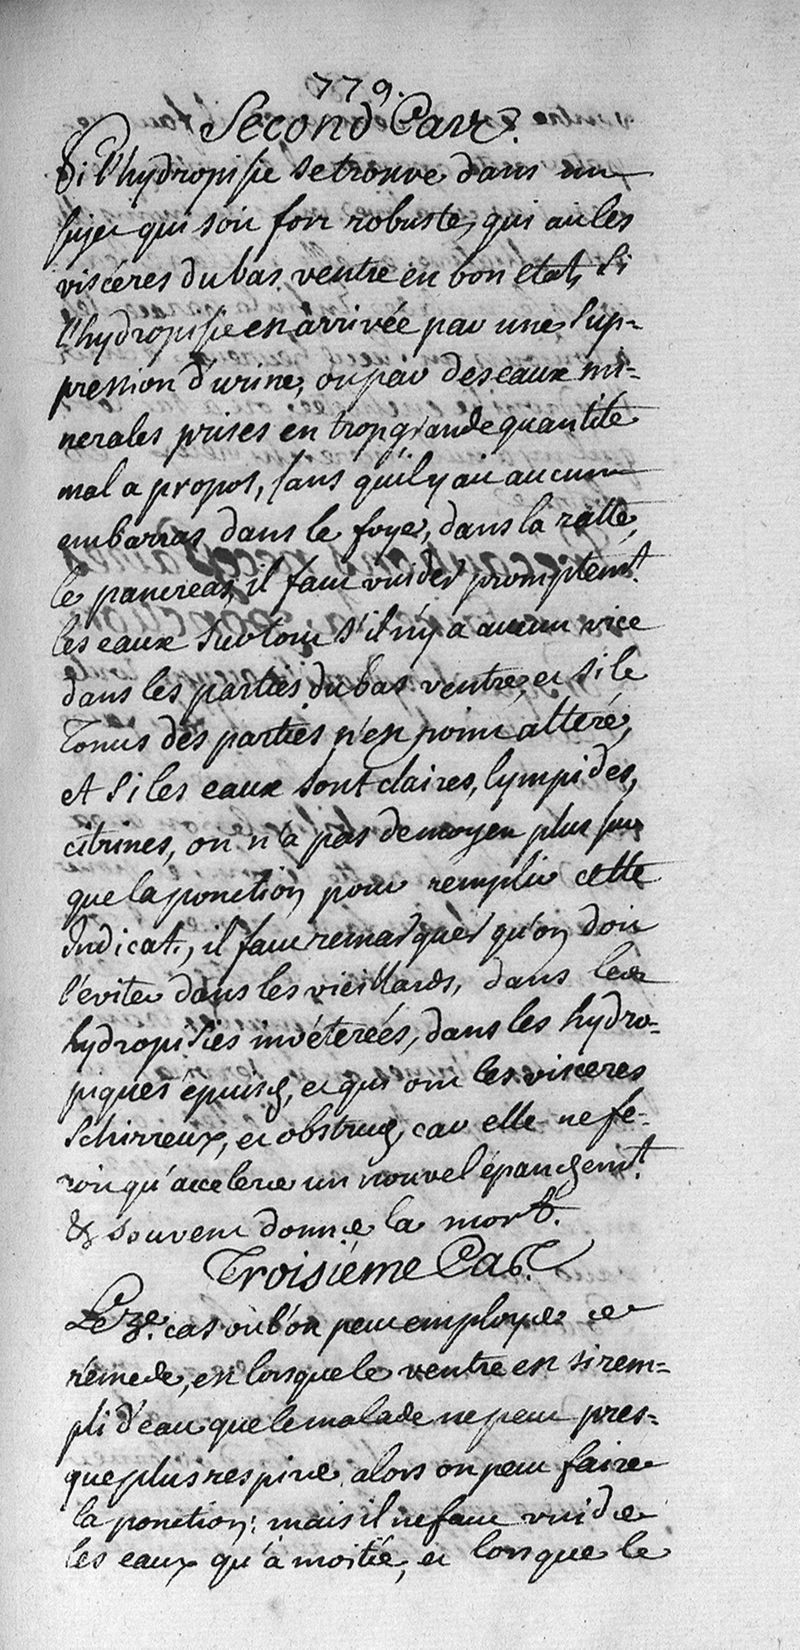 779.
Second Cas.
Si l'hydropisie se trouve dans un
sujet qui soit fort robuste, qui ait les
viscéres du bas ventre en bon etat, si
l'hydropisie est arrivée par une sup=
pression d'urine, ou par des eaux mi=
nerales prises en trop grande quantité
mal a propos, sans qu'il y ait aucun
embarras dans le foye, dans la ratte,
le pancreas, il faut vuider promptemt.
les eaux surtout s'il n'y a aucun vice
dans les parties du bas ventre, et si le
Tonus des parties n'est point alteré,
et si les eaux sont claires, lympides,
citrines, on n'a pas de moyen plus sur
que la ponction pour remplir cette
Indicat., il faut remarquer qu'on doit
l'eviter dans les vieillards, dans les
hydropisies invéterées, dans les hydro=
piques épuisés, et qui ont les visceres
schirreux, et obstrués, car elle ne fe=
roit qu'accelerer un nouvel épanchemt.
& souvent donner la mort.
Troisiéme Cas.
Le 3e. cas où l'on peut employer ce
rémede, est lorsque le ventre est si rem=
pli d'eau que le malade ne peut pres=
que plus respirer, alors on peut faire
la ponction: mais il ne faut vuider
les eaux qu'à moitié, et lorsque le